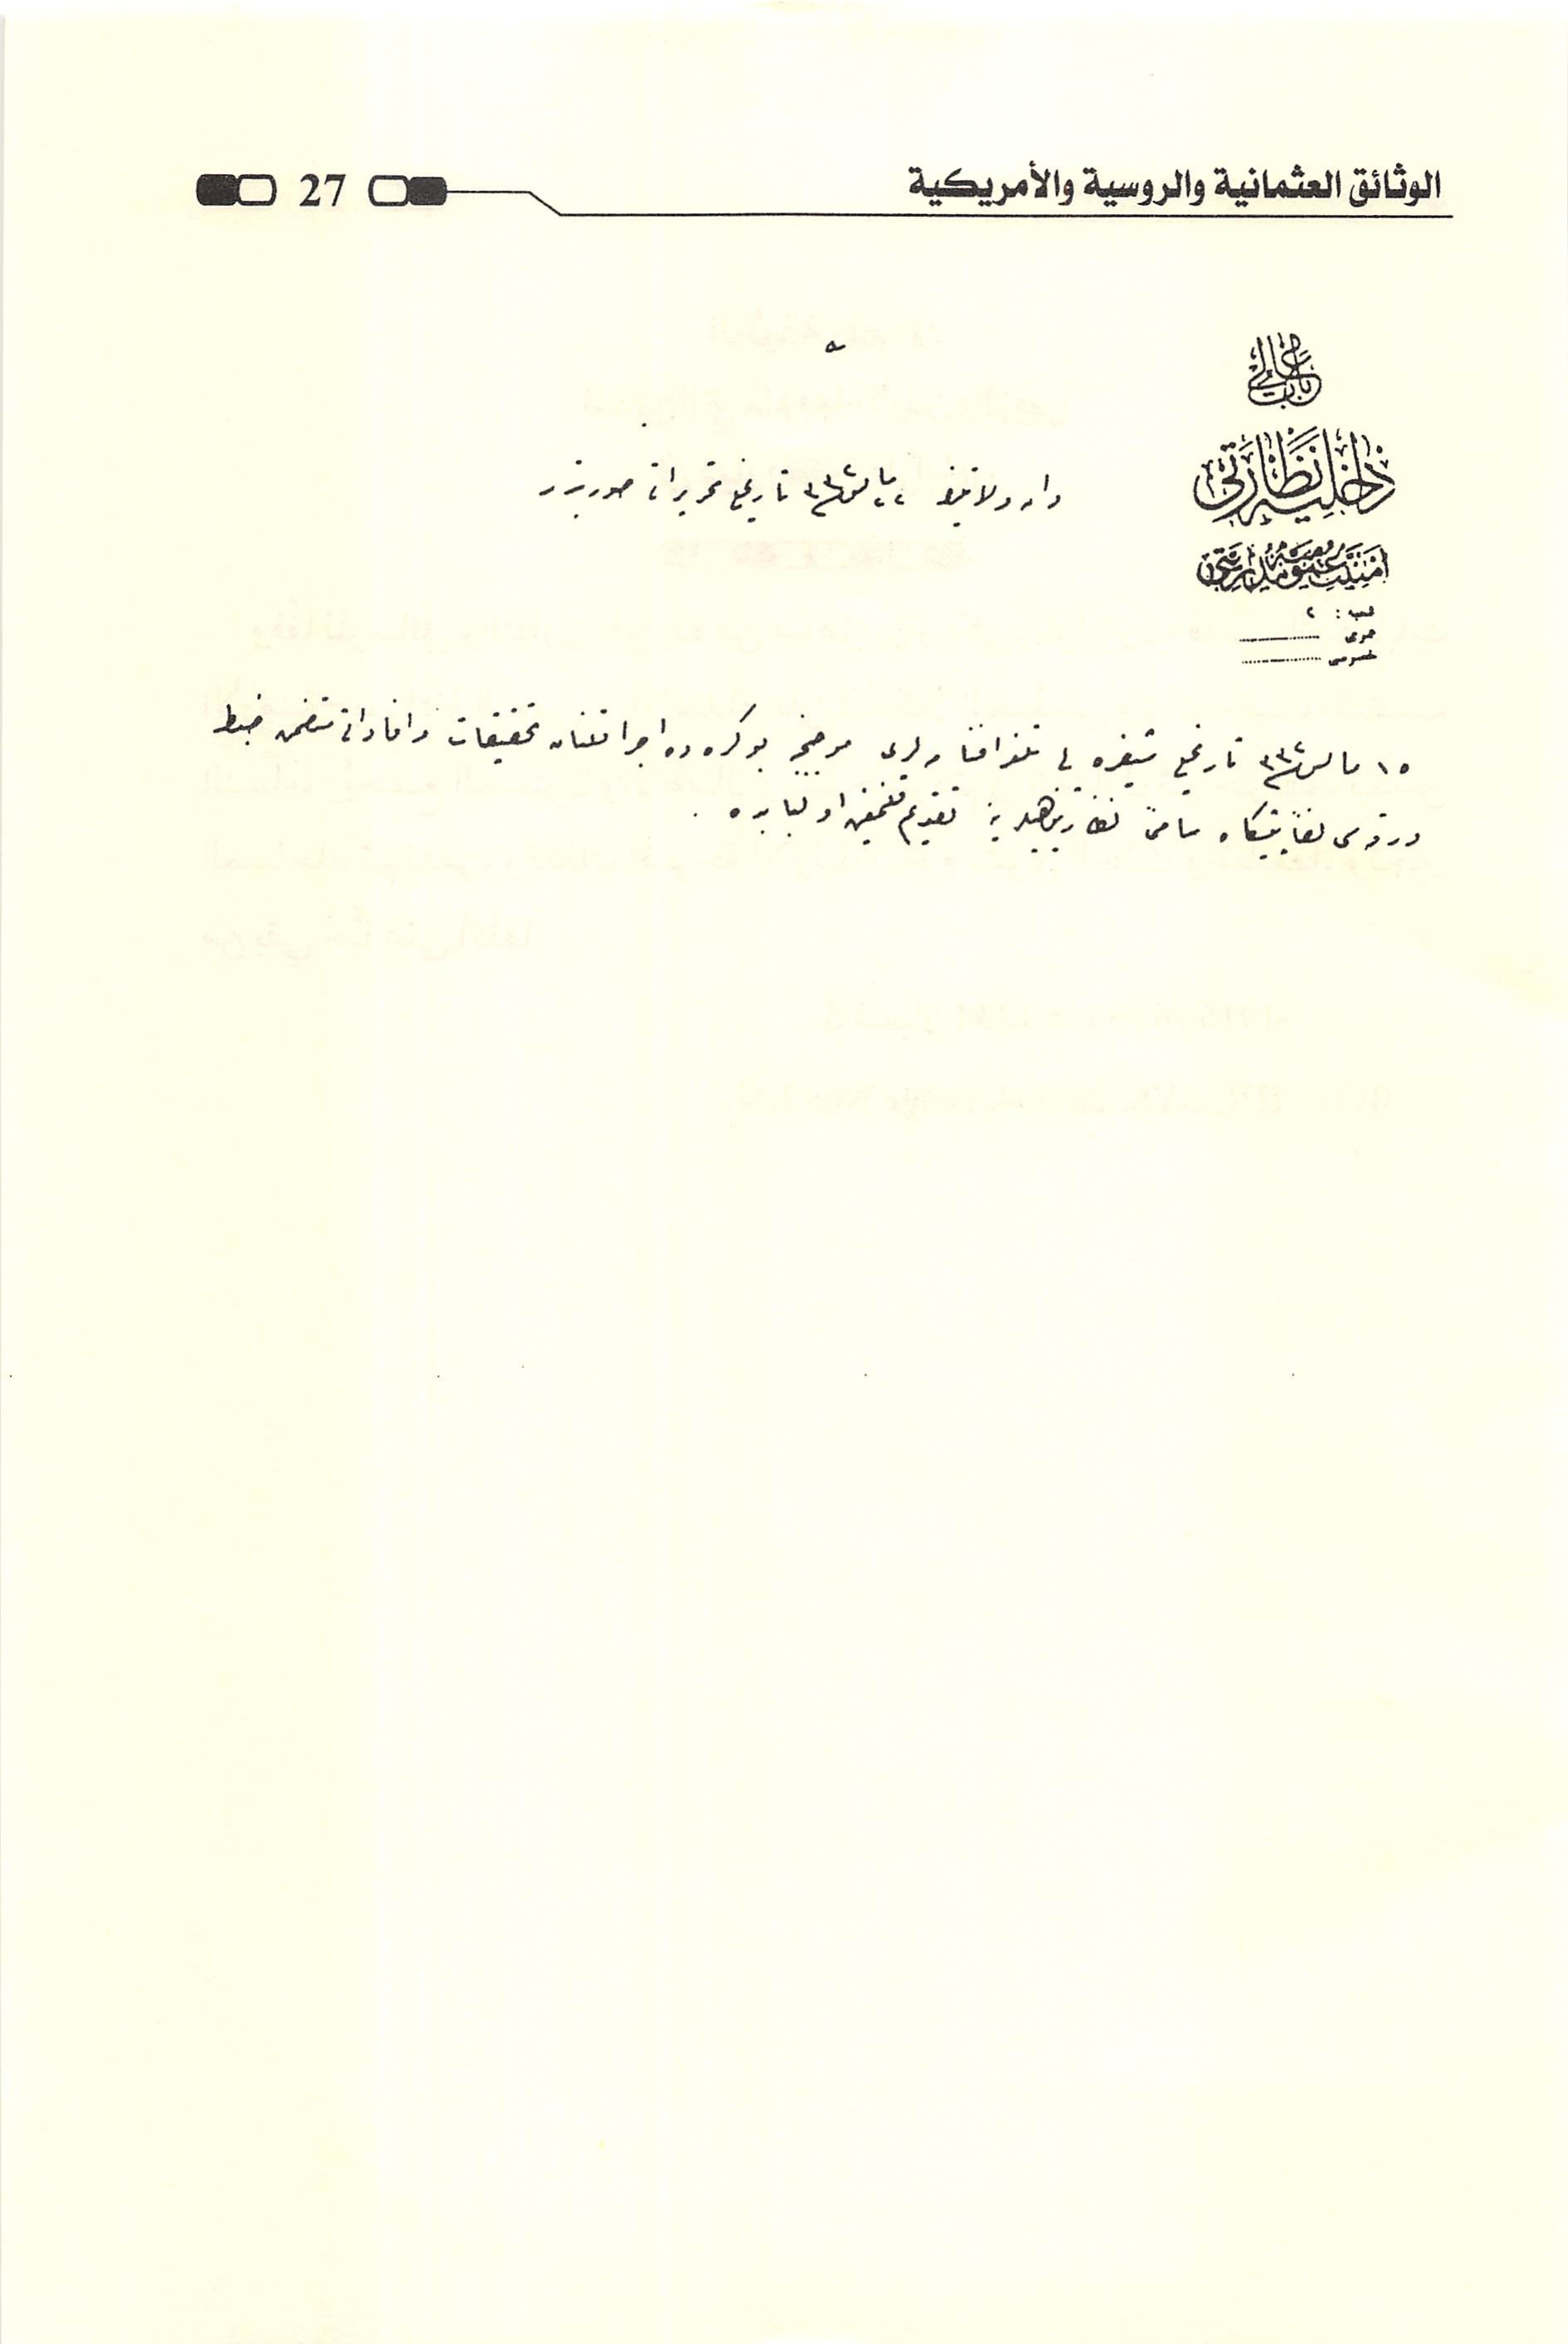 الوثائق العثمانية والروسية والأمريكية
27
باب عالی
داخلیه نظارتی
امنیت عمومیه مدیریتی
شعبه : ٢
عمومی
خصوصی
وان ولایتنك مایس ٣٣٢ تاریخلی تحریراتی صورتیدر
١٥ مایس ٣٣٢ تاریخلی شیفره لی تلغرافنامه لری موضح بو كره ده اجرا قلنان تحقیقات و افاداتی متضمن ضبط
ورقه سی لفاً پیشكاه سامئ نظارتپناهیلرینه تقدیم قلنمش اولمغله .